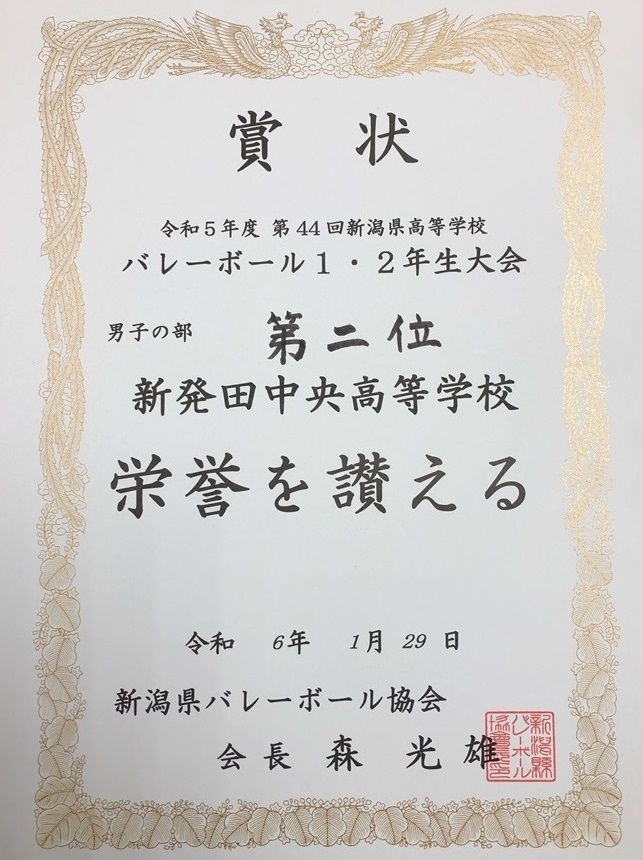 賞状
令和5年度 第44回新潟県高等学校
バレーボール1・2年生大会
男子の部 第二位
新発田中央高等学校
栄誉を讃える
令和 6年 1月 29日
新潟県バレーボール協会
会長 森 光雄
新潟縣
バレーボール
協會之印